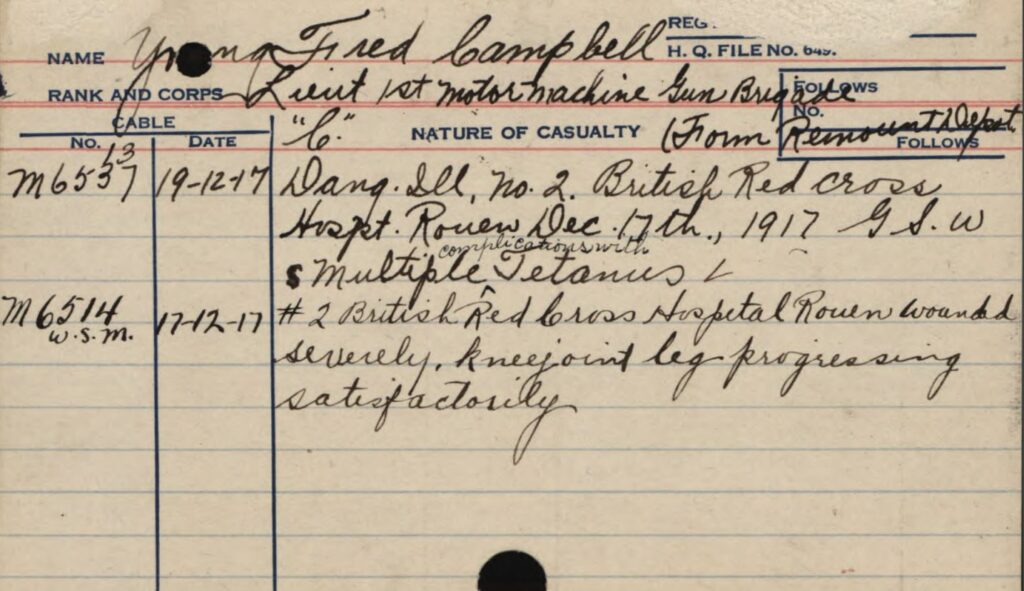 REG.
NAME Young Fred Campbell H. Q. FILE NO. 649.
RANK AND CORPS Lieut 1st Motor machine Gun Brigade FOLLOWS
No.
CABLE "C." NATURE OF CASUALTY (Form Remount Depot
NO. DATE FOLLOWS
13
M6537 19-12-17 Dang. Ill, No. 2. British Red cross
Hospt. Rouen Dec. 17th., 1917 G S. W
complications with
s Multiple ^ Tetanus
M6514 17-12-17 # 2 British Red Cross Hospetal Rouen wounded
W.S.M. severely, kneejoint leg progressing
satisfactorily